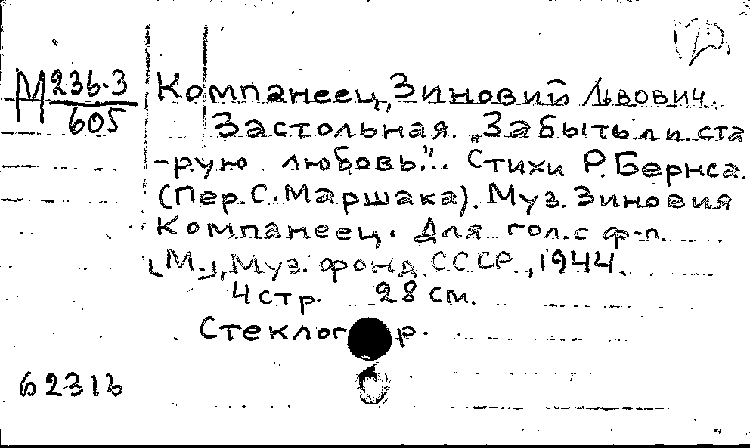 М 236-3
605
Компанеец, Зиновий Львович.
Застольная. "Забыть ли ста
-рую любовь..." Стихи Р. Бернса.
(Пер. С. Маршака). Муз. Зиновия
Компанеец. Для гол. с ф-п.
[М.], Муз. фонд СССР, 1944.
4 стр. 28 см.
Стеклогр.